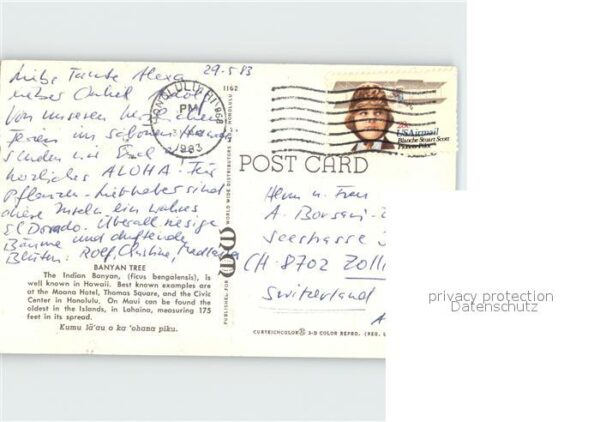 29.5.83
Liebe Tante Alexa
lieber Onkel
von unseren
Ferien im schönen Hawaii
senden wir
herzliches ALOHA. Für
Pflanzen-Liebhaber sind
diese Inseln ein wahres
El Dorado. Überall riesige
Bäume und duftende
Blüten. Rolf, Christine,
BANYAN TREE
The Indian Banyan, (ficus bengalensis), is
well known in Hawaii. Best known examples are
at the Moana Hotel, Thomas Square, and the Civic
Center in Honolulu. On Maui can be found the
oldest in the Islands, in Lahaina, measuring 175
feet in its spread.
Kumu lā'au o ka 'ohana piku.
1162
WORLD WIDE DISTRIBUTORS HONOLULU
PUBLISHED FOR
HONOLULU HI 968
PM
1983
28c
USAirmail
Blanche Stuart Scott
Pioneer Pilot
POST CARD
Herrn u. Frau
A. Borsari-
Seestrasse
CH-8702 Zolli
Switzerland
CURTEICHCOLOR® 3-D COLOR REPRO. (REG. U
privacy protection
Datenschutz